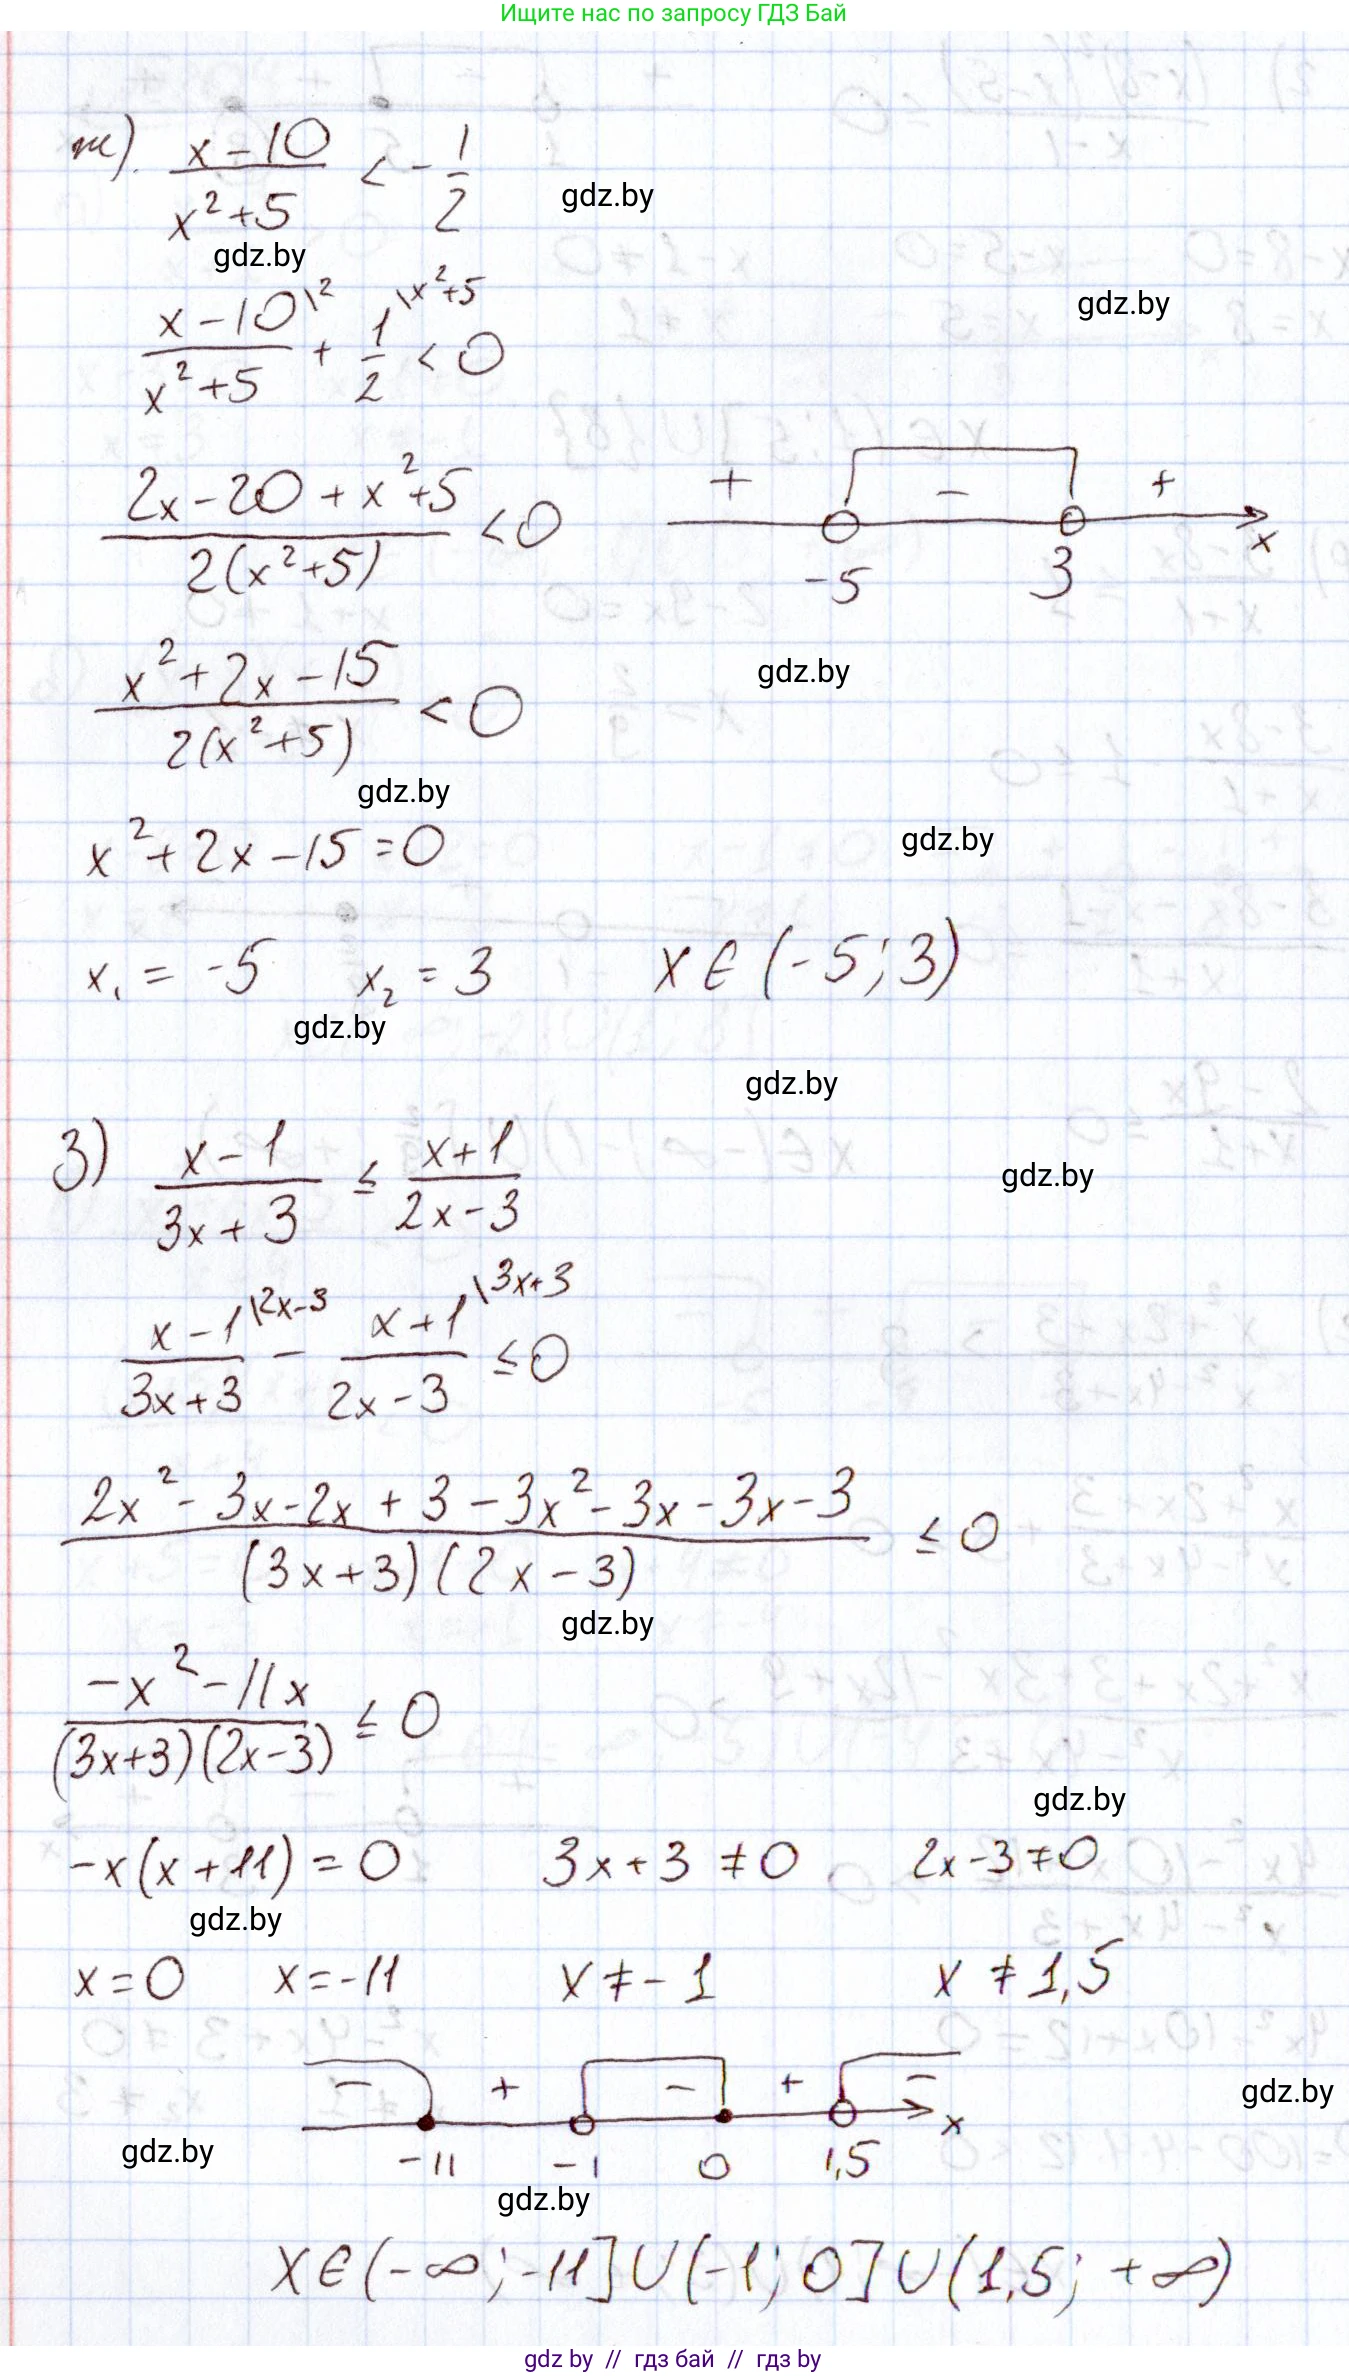 Ищите нас по запросу ГДЗ Бай
ж). (x-10)/(x²+5) < -1/2
gdz.by
gdz.by
(x-10)\²/(x²+5) + 1\ˣ²⁺⁵/2 < 0
gdz.by
(2x-20+x²+5)/(2(x²+5)) < 0
+ - +
-5 3 x
(x²+2x-15)/(2(x²+5)) < 0
gdz.by
gdz.by
x²+2x-15=0
gdz.by
x₁ = -5 x₂ = 3 x∈(-5;3)
gdz.by
gdz.by
з) (x-1)/(3x+3) ≤ (x+1)/(2x-3)
gdz.by
(x-1)\2x-3/(3x+3) - (x+1)\3x+3/(2x-3) ≤ 0
(2x²-3x-2x+3-3x²-3x-3x-3)/((3x+3)(2x-3)) ≤ 0
gdz.by
(-x²-11x)/((3x+3)(2x-3)) ≤ 0
gdz.by
-x(x+11)=0 3x+3≠0 2x-3≠0
gdz.by
x=0 x=-11 x≠-1 x≠1,5
- + - + -
gdz.by
-11 -1 0 1,5 x
gdz.by
gdz.by
x∈(-∞;-11]∪(-1;0]∪(1,5;+∞)
gdz.by // гдз бай // гдз by